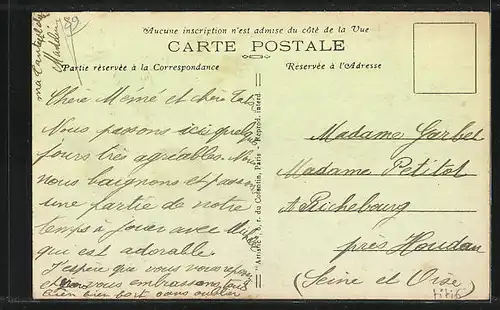 Aucune inscription n'est admise du côté de la Vue
CARTE POSTALE
Partie réservée à la Correspondance
Réservée à l'Adresse
Chère Mémé et chère
Nous passons ici quelques
jours très agréables. Nous
nous baignons et passons
une partie de notre
temps à jouer avec
qui est adorable.
J'espère que vous vous
vous embrassons
bien bien fort sans oublier
ma
Madeleine
"Artistic", 5, r. du Cotentin, Paris Reprod. interd.
Madame Garbet
Madame Petitot
A Richebourg
près Houdan
(Seine et Oise)